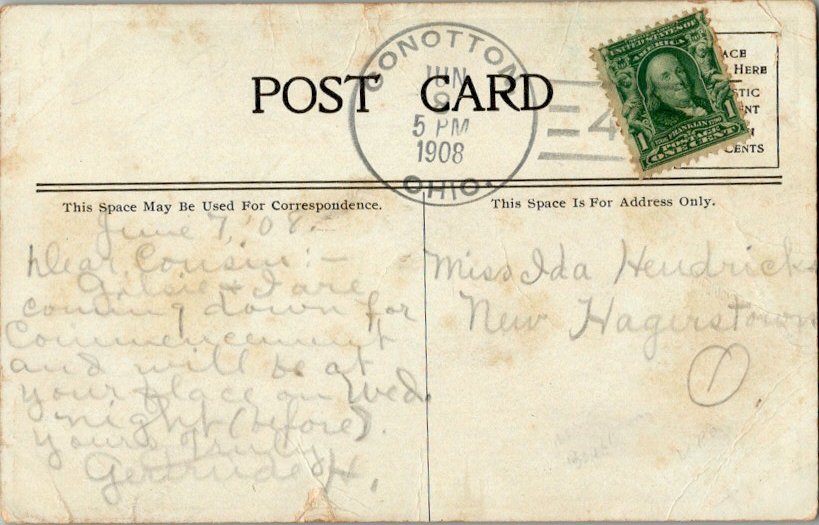 POST CARD
CONOTTON
JUN
8
5 PM
1908
OHIO.
4
UNITED STATES OF
AMERICA
FRANKLIN
1 POSTAGE 1
ONE CENT
HERE
CENTS
This Space May Be Used For Correspondence.
June 7, '08.
Dear Cousin:-
& I are
coming down for
Commencement
and will be at
your place on Wed.
night (before).
Yours Truly
Gertrude H.
This Space Is For Address Only.
Miss Ida Hendricks
New Hagerstown
1